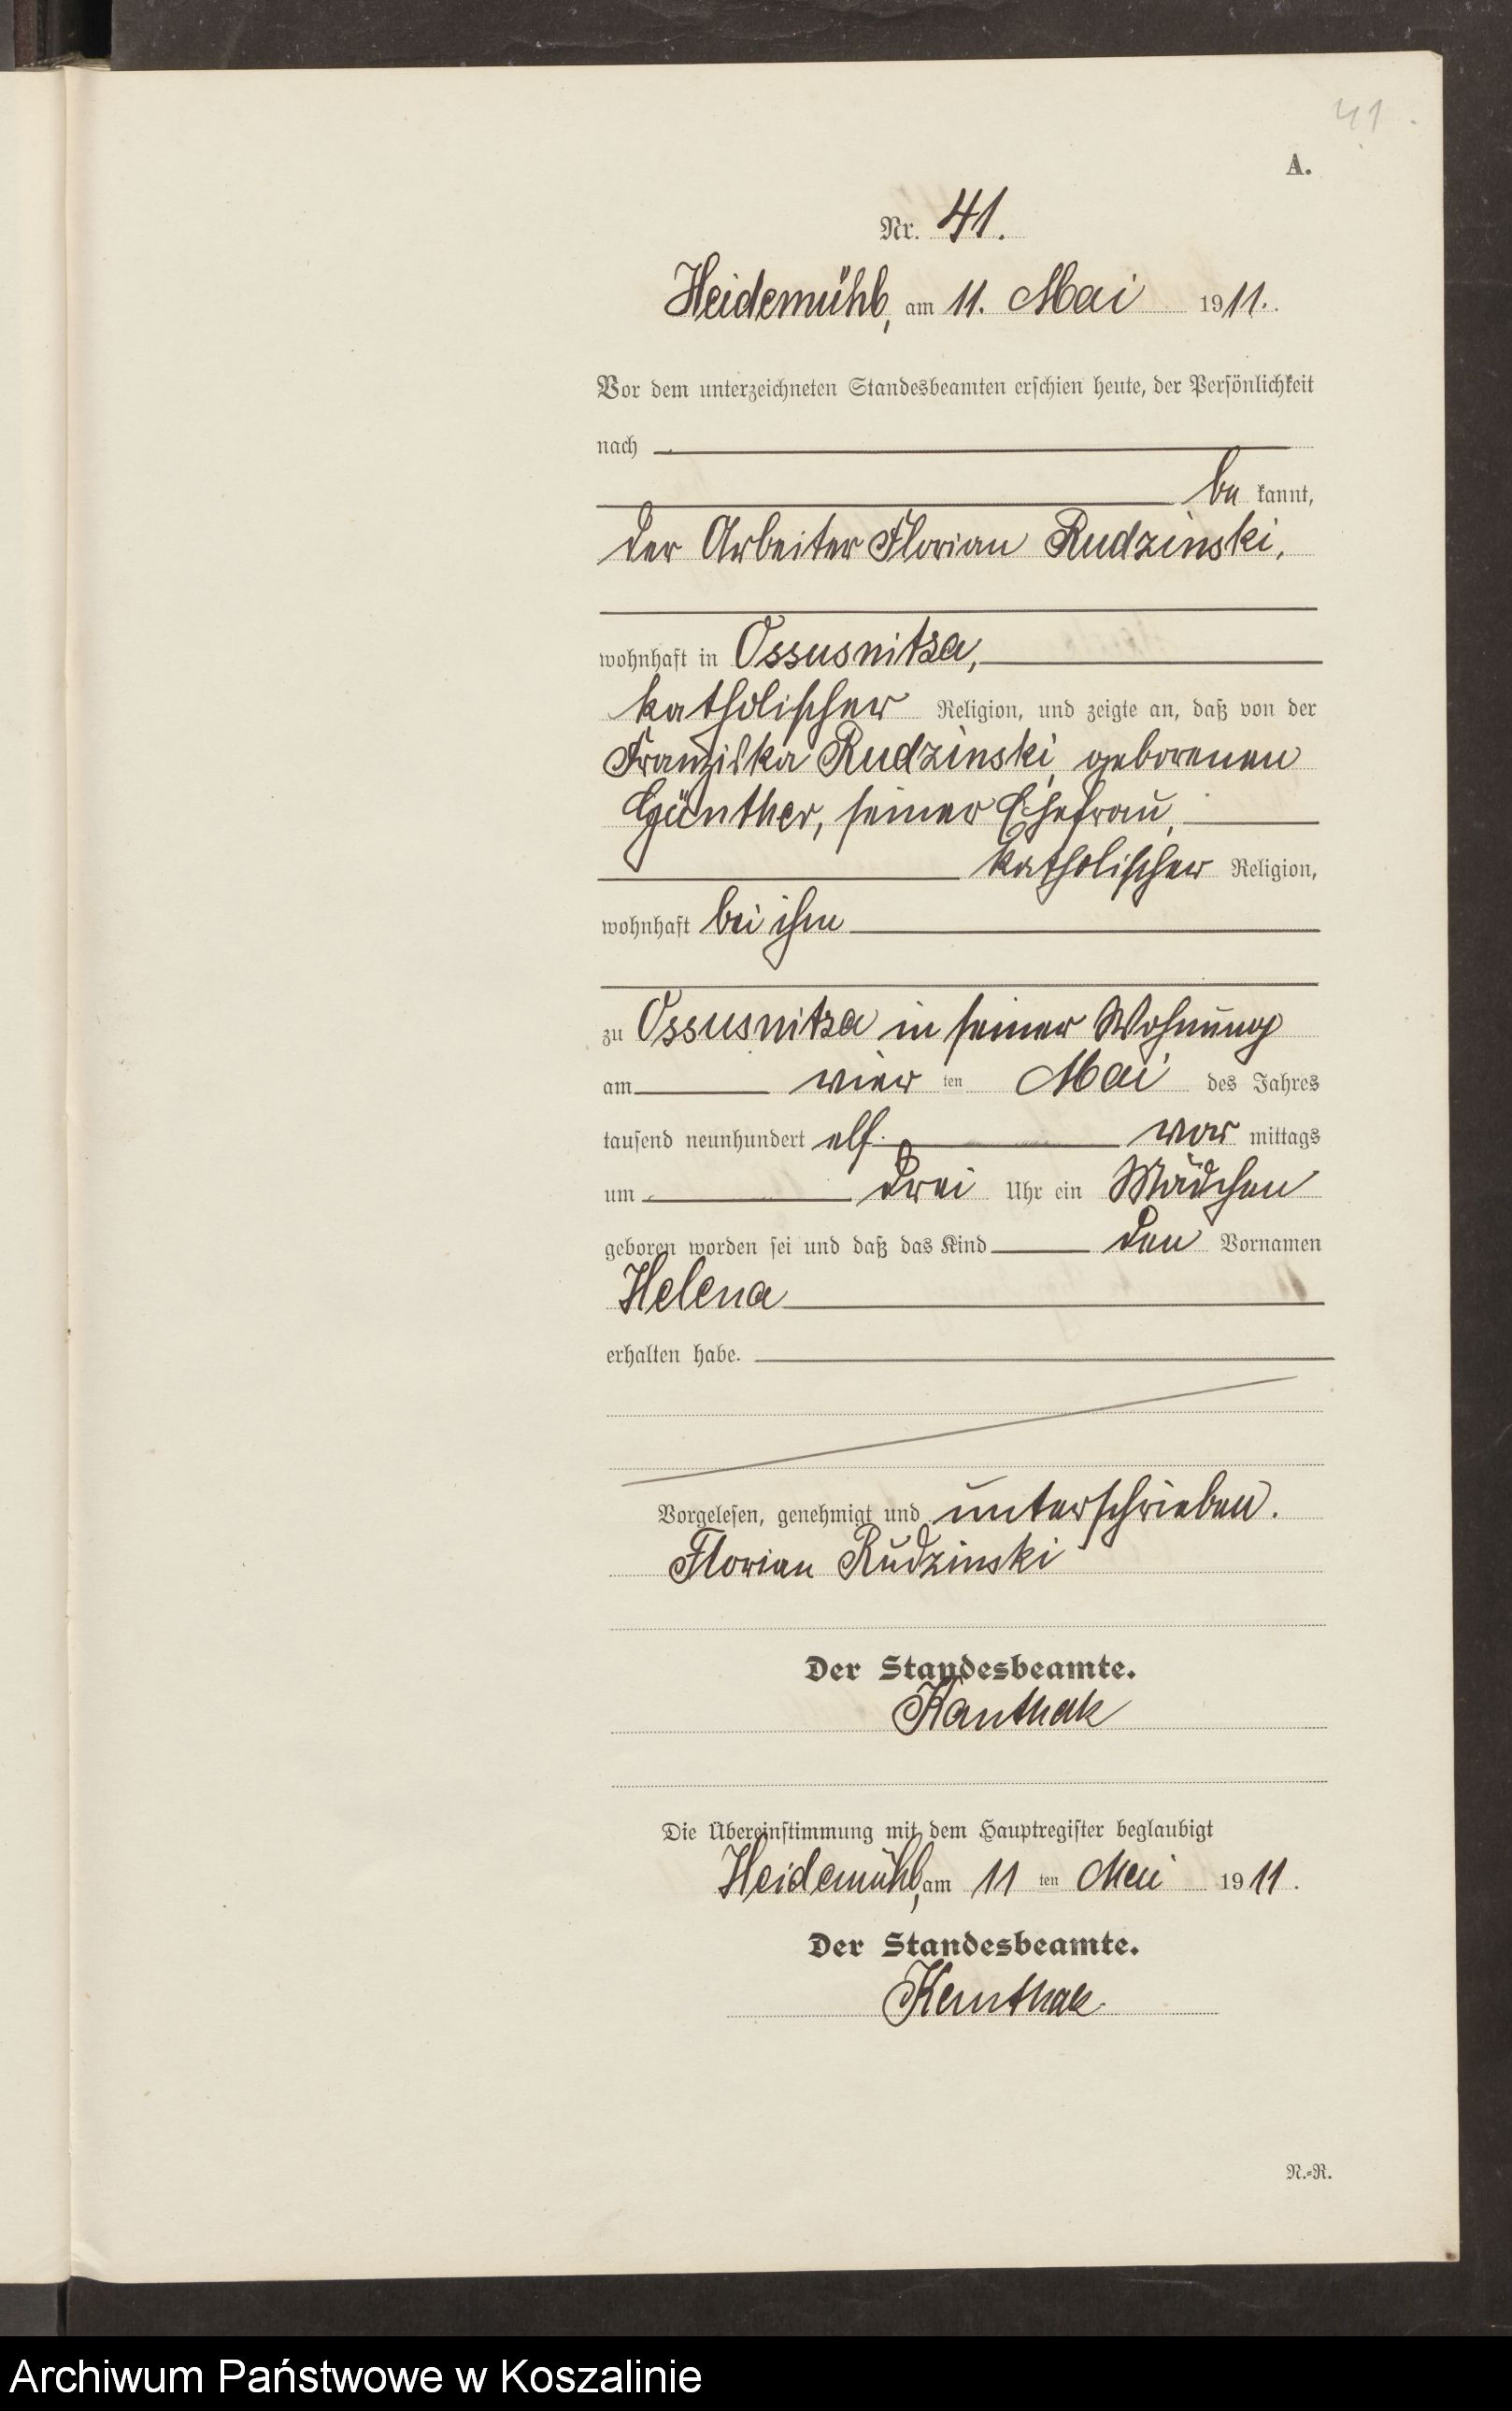 41.
A.
Nr. 41.
Heidemühl, am 11. Mai 1911.
Vor dem unterzeichneten Standesbeamten erschien heute, der Persönlichkeit
nach
be kannt,
der Arbeiter Florian Rudzinski,
wohnhaft in Ossusnitza,
katholischer Religion, und zeigte an, daß von der
Franziska Rudzinski geborenen
Günther, seiner Ehefrau,
katholischer Religion,
wohnhaft bei ihm
zu Ossusnitza in seiner Wohnung
am vier ten Mai des Jahres
tausend neunhundert elf vor mittags
um drei Uhr ein Mädchen
geboren worden sei und daß das Kind den Vornamen
Helena
erhalten habe.
Vorgelesen, genehmigt und unterschrieben.
Florian Rudzinski
Der Standesbeamte.
Kanthak
Die Übereinstimmung mit dem Hauptregister beglaubigt
Heidemühl, am 11 ten Mai 1911.
Der Standesbeamte.
Kanthak.
N.-R.
Archiwum Państwowe w Koszalinie